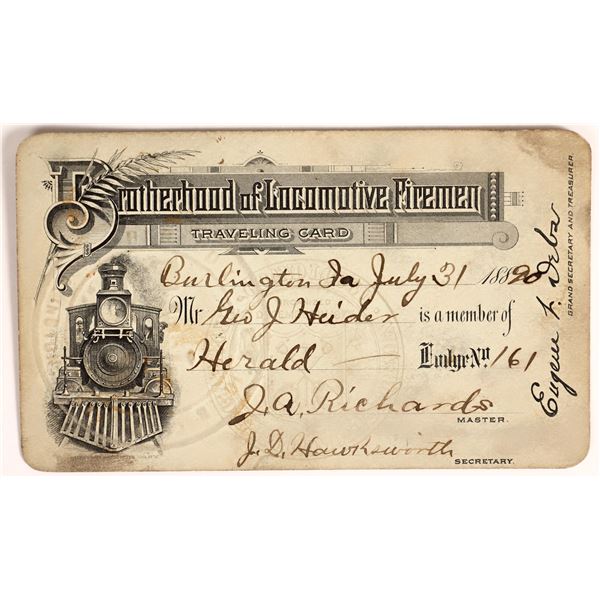 Brotherhood of Locomotive Firemen
TRAVELING CARD
Burlington Ia July 31 18890
Mr Geo J Heider is a member of
Herald — Lodge No 161
J.A. Richards
MASTER.
J.D. Hawksworth
SECRETARY.
Eugene V. Debs
GRAND SECRETARY AND TREASURER.